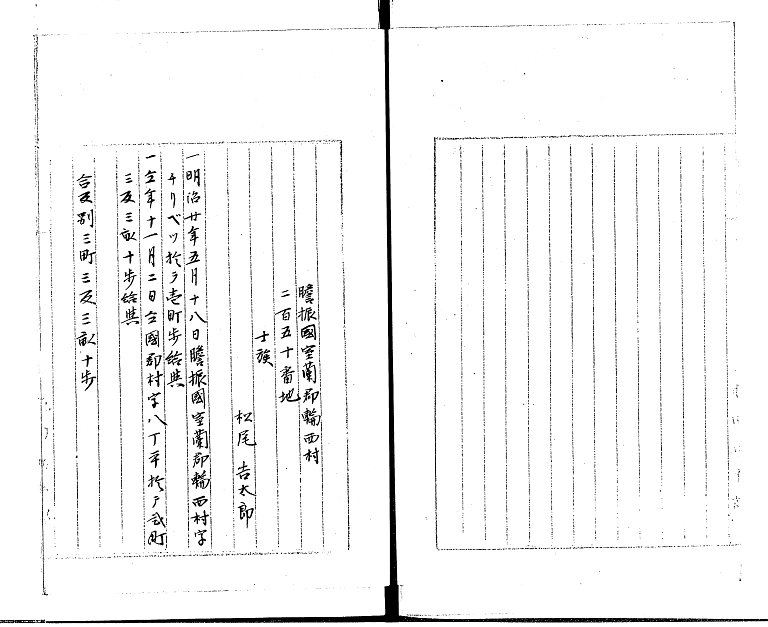 膽振國室蘭郡輪西村
二百五十番地
士族
松尾吉太郎
一明治廿年五月十八日膽振國室蘭郡輪西村字
チリベツ於テ壱町歩給與
一仝年十一月二日仝國郡村字八丁平於テ弐町
三反三畝十歩給與
合反別三町三反三畝十歩